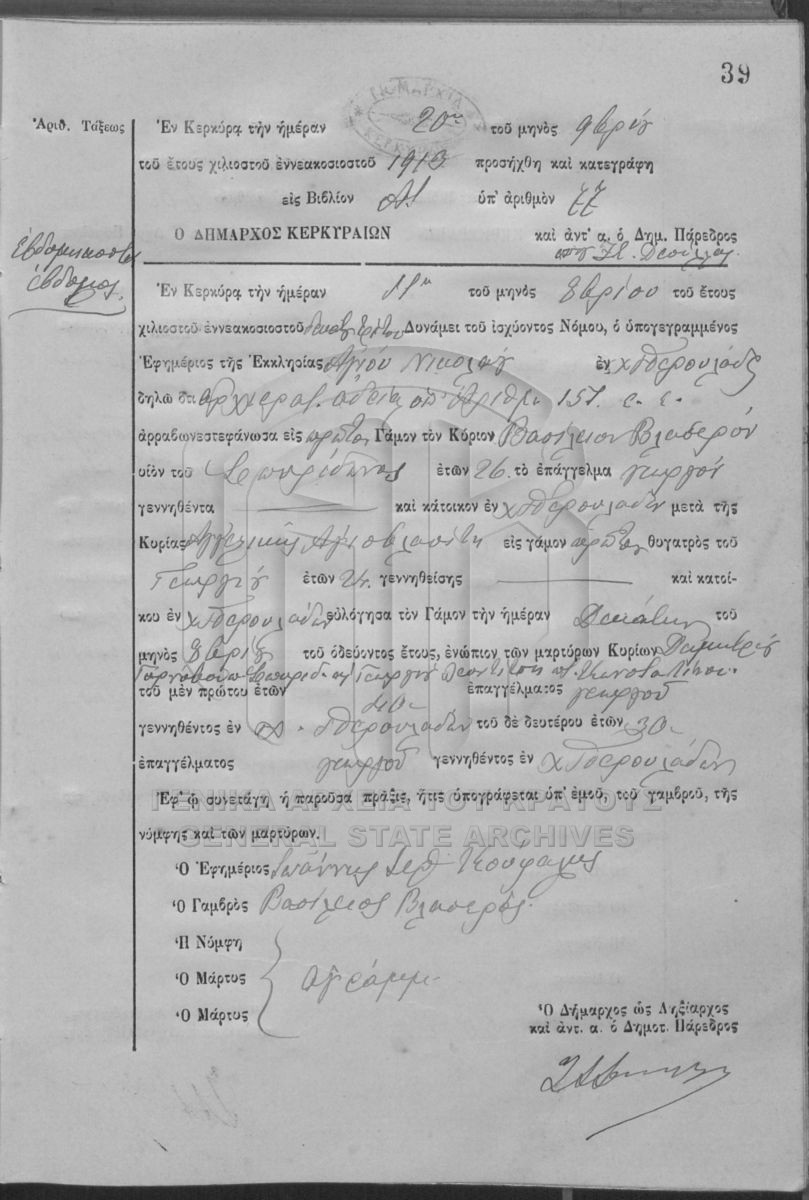 39
Ἀριθ. Τάξεως
Ἐν Κερκύρᾳ τὴν ἡμέραν 20ην τοῦ μηνὸς 9βρίου
τοῦ ἔτους χιλιοστοῦ ἐννεακοσιοστοῦ 1913 προσήχθη καὶ κατεγράφη
εἰς Βιβλίον ὑπ' ἀριθμὸν 77
Ὁ ΔΗΜΑΡΧΟΣ ΚΕΡΚΥΡΑΙΩΝ καὶ ἀντ' α. ὁ Δημ. Πάρεδρος
Ἑβδομηκοστὸς
ἕβδομος.
Ἐν Κερκύρᾳ τὴν ἡμέραν 11η τοῦ μηνὸς 8βρίου τοῦ ἔτους
χιλιοστοῦ ἐννεακοσιοστοῦ δεκάτου τρίτου Δυνάμει τοῦ ἰσχύοντος Νόμου, ὁ ὑπογεγραμμένος
Ἐφημέριος τῆς Ἐκκλησίας Ἁγίου Νικολάου ἐν χ. Περουλάδες
δηλῶ ὅτι ἀρχιερατ. ἀδείᾳ ὑπ' ἀριθμ. 157. ἐ. ἔ.
ἀρραβωνεστεφάνωσα εἰς πρῶτον Γάμον τὸν Κύριον Βασίλειον Βλασερὸν
υἱὸν τοῦ Σπυρίδωνος ἐτῶν 26. τὸ ἐπάγγελμα γεωργὸν
γεννηθέντα καὶ κάτοικον ἐν χ. Περουλάδων μετὰ τῆς
Κυρίας Ἀγγελικῆς εἰς γάμον πρῶτον θυγατρὸς τοῦ
Γεωργίου ἐτῶν 24. γεννηθείσης καὶ κατοί-
κου ἐν χ. Περουλάδων εὐλόγησα τὸν Γάμον τὴν ἡμέραν Δεκάτην τοῦ
μηνὸς 8βρίου τοῦ ὁδεύοντος ἔτους, ἐνώπιον τῶν μαρτύρων Κυρίων Δημητρίου
Σπυρίδ. καὶ Γεωργίου Κωνσταντίνου.
τοῦ μὲν πρώτου ἐτῶν 40 ἐπαγγέλματος γεωργοῦ
γεννηθέντος ἐν χ. Περουλάδων τοῦ δὲ δευτέρου ἐτῶν 30
ἐπαγγέλματος γεωργοῦ γεννηθέντος ἐν χ. Περουλάδων
Ἐφ' ᾧ συνετάγη ἡ παροῦσα πρᾶξις, ἥτις ὑπογράφεται ὑπ' ἐμοῦ, τοῦ γαμβροῦ, τῆς
νύμφης καὶ τῶν μαρτύρων.
ΓΕΝΙΚΑ ΑΡΧΕΙΑ ΤΟΥ ΚΡΑΤΟΥΣ
GENERAL STATE ARCHIVES
Ὁ Ἐφημέριος Ἰωάννης
Ὁ Γαμβρὸς Βασίλειος Βλασερὸς.
Ἡ Νύμφη
Ὁ Μάρτυς ἀγράμμ.
Ὁ Μάρτυς
Ὁ Δήμαρχος ὡς Ληξίαρχος
καὶ ἀντ. α. ὁ Δημοτ. Πάρεδρος